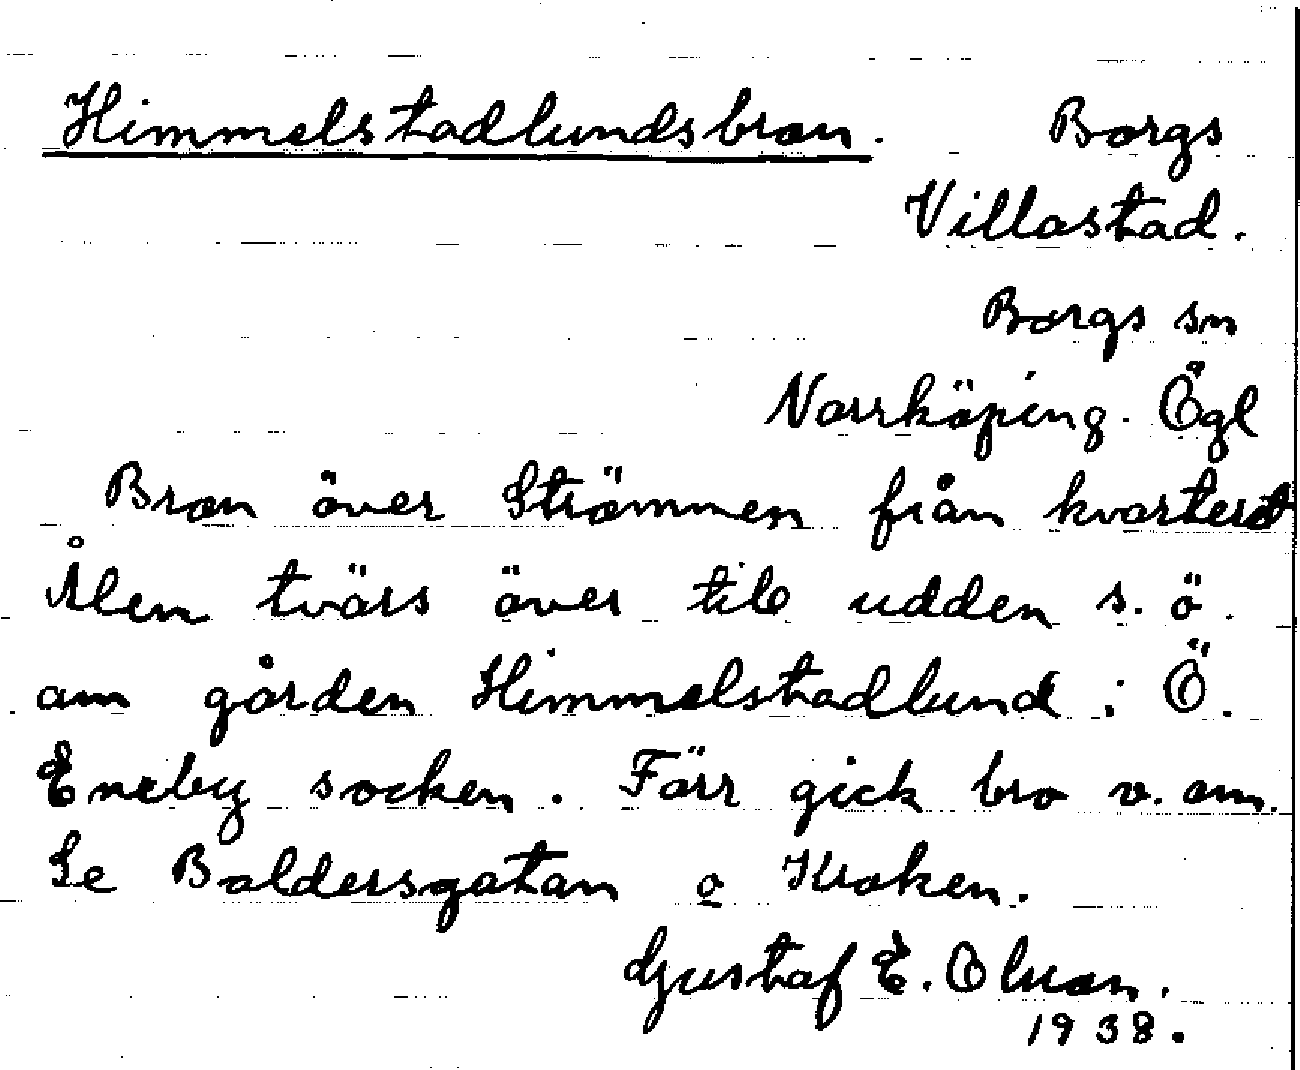 Himmelstadlundsbron. Borgs
Villastad.
Borgs sn
Norrköping. Ögl
Bron över Strömmen från kvarteret
Ålen tvärs över till udden s. ö.
om gården Himmelstadlund i Ö.
Eneby socken. Förr gick bro v. om.
Se Baldersgatan o Kroken.
Gustaf E. Olsson.
1938.